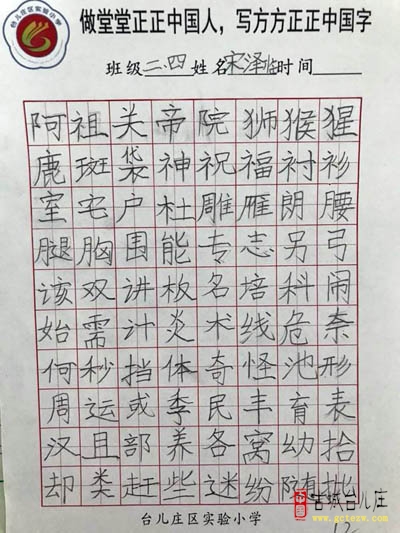 台儿庄区实验小学
做堂堂正正中国人，写方方正正中国字
班级二.四姓名宋泽临时间
阿祖关帝院狮猴猩
鹿斑袋神祝福衬衫
室宅户杜雕雁朗腰
腿胸围能专志另弓
该双讲板名培科闹
始需汁炎术线危奈
何秒挡体奇怪池形
周运或季民丰育表
汉且部养各窝幼拾
却类赶些迷纷随批
台儿庄区实验小学
中国古城台儿庄
www.gctezw.com